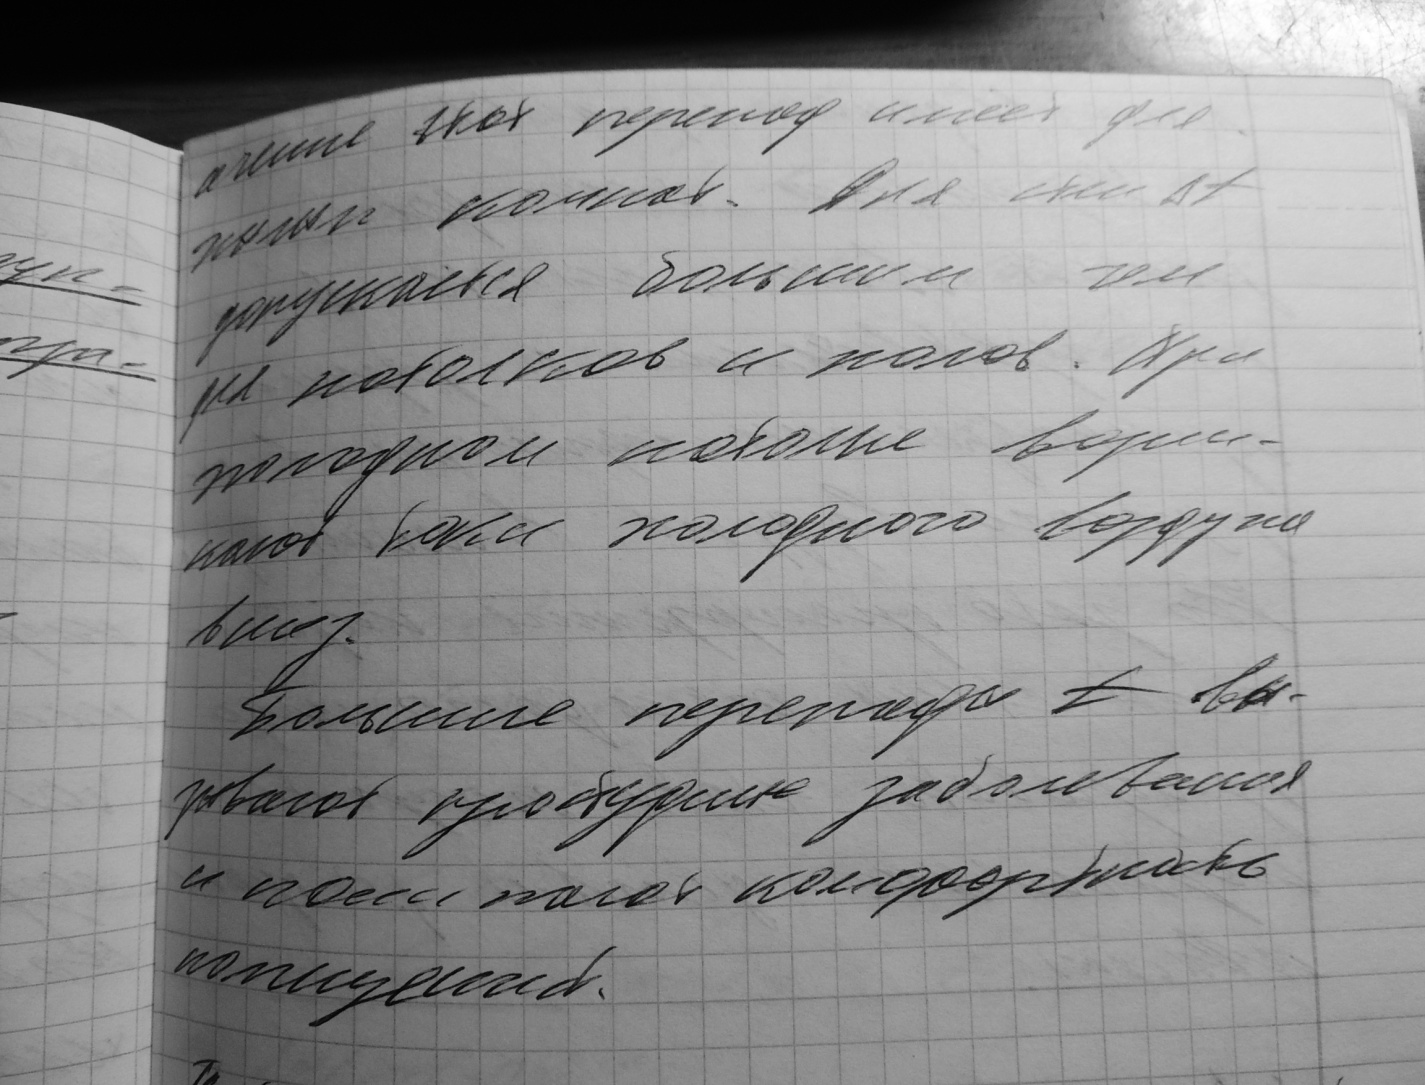 ачение этот перепад имеет для
жилых комнат. Для стен Δt
допускается большим чем
для потолков и полов. При
холодном потолке возни-
кают токи холодного воздуха
вниз.
Большие перепады t вы-
зывают простудные заболевания
и понижают комфортность
помещений.